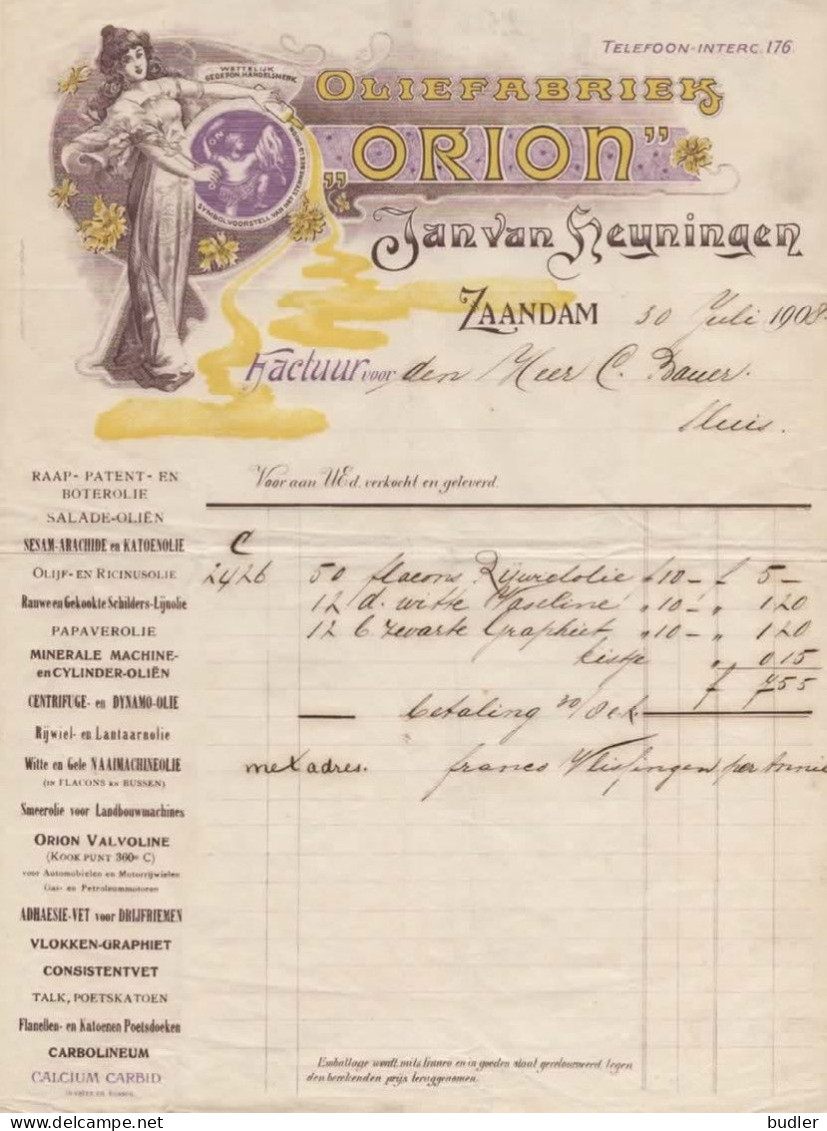 TELEFOON-INTERC. 176.
WETTELIJK
GEDEPON. HANDELSMERK
OLIEFABRIEK
„ORION”
ORION
SYMBOL. VOORSTELL. VAN HET STERREBEELD ORION
Jan van Heyningen
ZAANDAM 30 Juli 1908.
Factuur voor den Heer C. Bauer.
Sluis.
RAAP- PATENT- EN
BOTEROLIE
SALADE-OLIËN
SESAM-ARACHIDE en KATOENOLIE
OLIJF- EN RICINUSOLIE
Rauwe en Gekookte Schilders-Lijnolie
PAPAVEROLIE
MINERALE MACHINE-
en CYLINDER-OLIËN
CENTRIFUGE- en DYNAMO-OLIE
Rijwiel- en Lantaarnolie
Witte en Gele NAAIMACHINEOLIE
(IN FLACONS EN BUSSEN)
Smeerolie voor Landbouwmachines
ORION VALVOLINE
(KOOKPUNT 360° C)
voor Automobielen en Motorrijwielen
Gas- en Petroleummotoren
ADHAESIE-VET voor DRIJFRIEMEN
VLOKKEN-GRAPHIET
CONSISTENTVET
TALK, POETSKATOEN
Flanellen- en Katoenen Poetsdoeken
CARBOLINEUM
CALCIUM CARBID
Voor aan UEd. verkocht en geleverd.
C
2426 50 flacons Rijwielolie f 10 — f 5 —
12 d. witte Vaseline „ 10 — „ 1 20
12 b. zwarte Graphiet „ 10 — „ 1 20
kistje „ 0 15
f 7 55
betaling 30/d e.k.
met adres. franco Vlissingen per Annie
Emballage wordt, mits franco en in goeden staat geretourneerd, tegen
den berekenden prijs teruggenomen.
budler